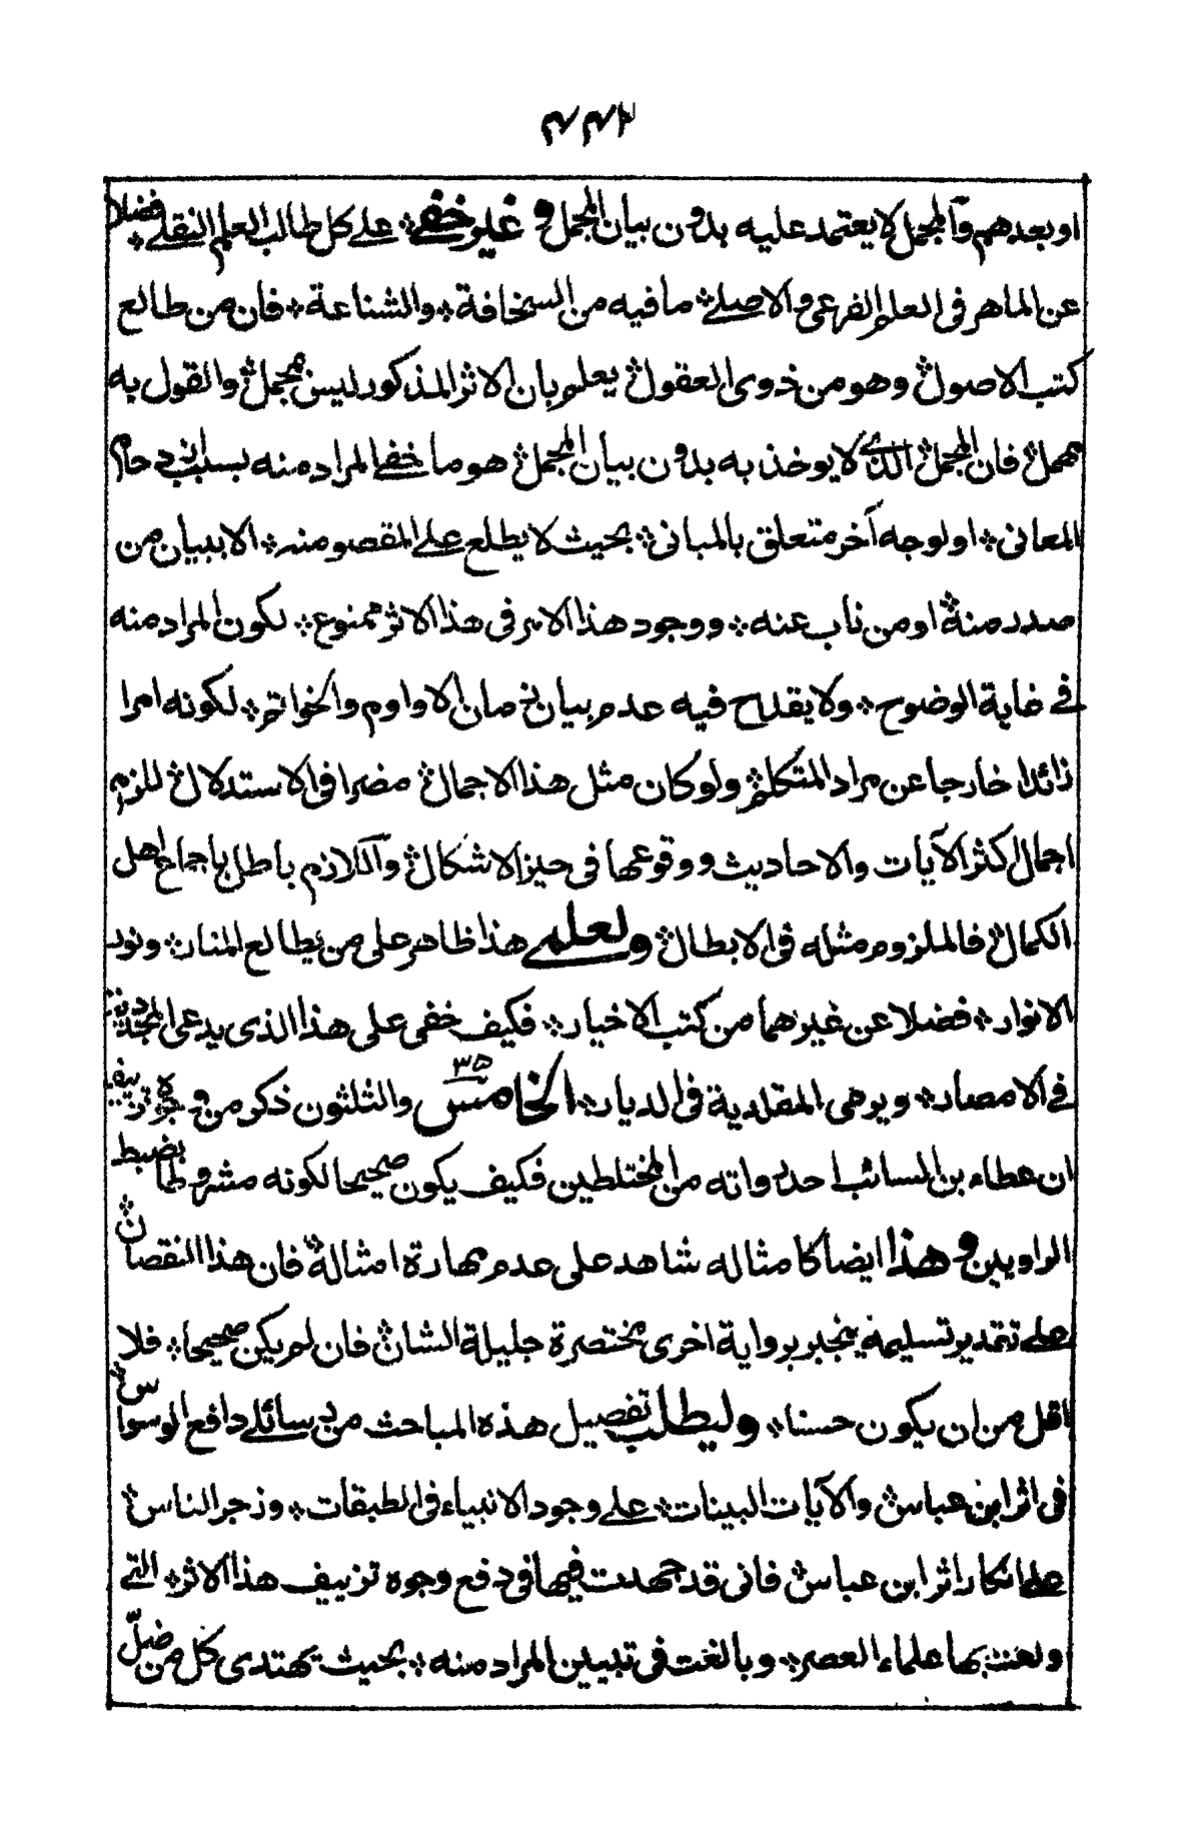 او بعدهم والمجمل لا يعتمد عليه بدون بيان المجمل و غير خفي ؞ علے كل طالب العلم النقلے ؞ فضلا
عن الماهر فى العلم الفرعى والاصلے ؞ ما فيه من السخافة ؞ والشناعة ؞ فان من طالع
كتب الاصول ؞ وهو من ذوى العقول ؞ يعلم بان الاثر المذكور ليس بمجمل ؞ والقول به
مهمل ؞ فان المجمل ؞ الذے لا يوخذ به بدون بيان المجمل ؞ هو ما خفے المراد منه بسبب ازدحام
المعانى ؞ او لوجه آخر متعلق بالمبانى ؞ بحيث لا يطلع علے المقصو منه ؞ الا ببيان من
صدر منه ؞ او من ناب عنه ؞ ووجود هذا الامر فى هذا الاثر ممنوع ؞ لكون المراد منه
فے غاية الوضوح ؞ ولا يقدح فيه عدم بيان زمان الاوادم والخواتم ؞ لكونه امرا
زائدا خارجا عن مراد المتكلم ؞ ولو كان مثل هذا الاجمال ؞ مضرا فى الاستدلال ؞ للزم
اجمال كثر الآيات والاحاديث ووقوعها فى حيز الاشكال ؞ واللازم باطل باجماع اهل
الكمال ؞ فالملزوم مثله فى الابطال ؞ ولعلمے هذا ظاهر على من يطالع المنار ؞ ونور
الانوار ؞ فضلا عن غيرهما من كتب الاخيار ؞ فكيف خفى على هذا الذى يدعى المجددية
فے الامصار ؞ ويرمى المقلدية فى الديار ؞ الخامس ٣٥ والثلثون ذكر من وجوه تزييفه
ان عطاء بن السائب احد رواته من المختلطين فكيف يكون صحيحا لكونه مشروطا بضبط
الراويين و هذا ايضا كامثاله شاهد على عدم مهارة امثاله ؞ فان هذا النقصان ؞
علے تقدير تسليمه ينجبر برواية اخرى مختصرة جليلة الشان ؞ فان لم يكن صحيحا ؞ فلا
اقل من ان يكون حسنا ؞ و ليطلب تفصيل هذه المباحث من رسائلے دافع الوسواس ؞
فى اثر ابن عباس ؞ والآيات البينات ؞ علے وجود الانبياء فى الطبقات ؞ وزجر الناس ؞
علے انكار اثر ابن عباس ؞ فانى قد جهدت فيها فى دفع وجوه تزييف هذا الاثر ؞ التے
ولعت بها علماء العصر ؞ وبالغت فى تبيين المراد منه ؞ بحيث يهتدى كل من ضلّ